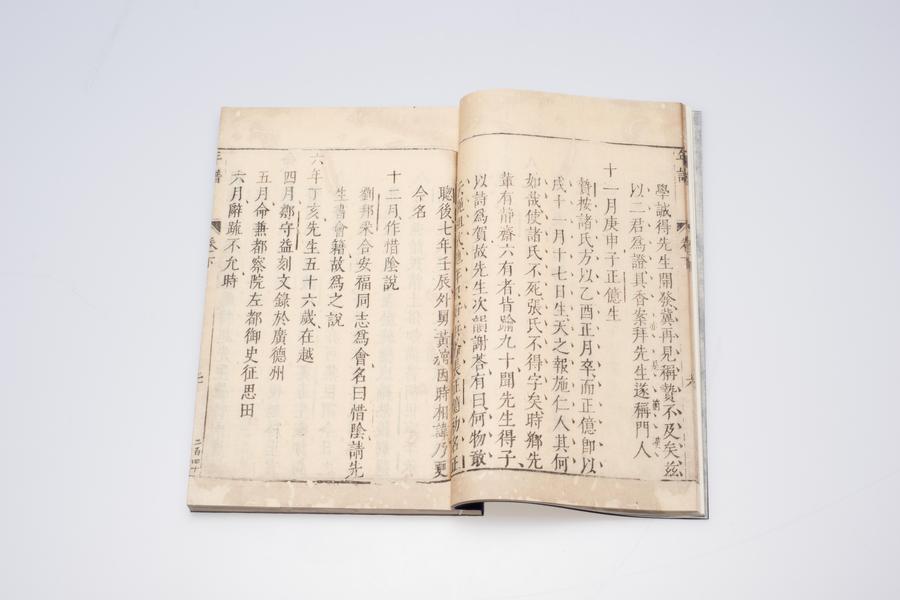 年譜
卷下
六
學誠得先生開發冀再見稱贄不及矣茲
以二君爲證具香案拜先生遂稱門人
十一月庚申子正億生
贄按諸氏方以乙酉正月卒而正億卽以
戌十一月十七日生天之報施仁人其何
如哉使諸氏不死張氏不得字矣時鄉先
輩有靜齋六有者皆踰九十聞先生得子
以詩爲賀故先生次韻謝荅有曰何物敢
聰後七年壬辰外舅黃綰因時相諱乃更
今名
十二月作惜陰說
劉邦采合安福同志爲會名曰惜陰請先
生書會籍故爲之說
六年丁亥先生五十六歲在越
四月鄒守益刻文錄於廣德州
五月命兼都察院左都御史征思田
六月辭疏不允時
年譜
卷下
二百四十